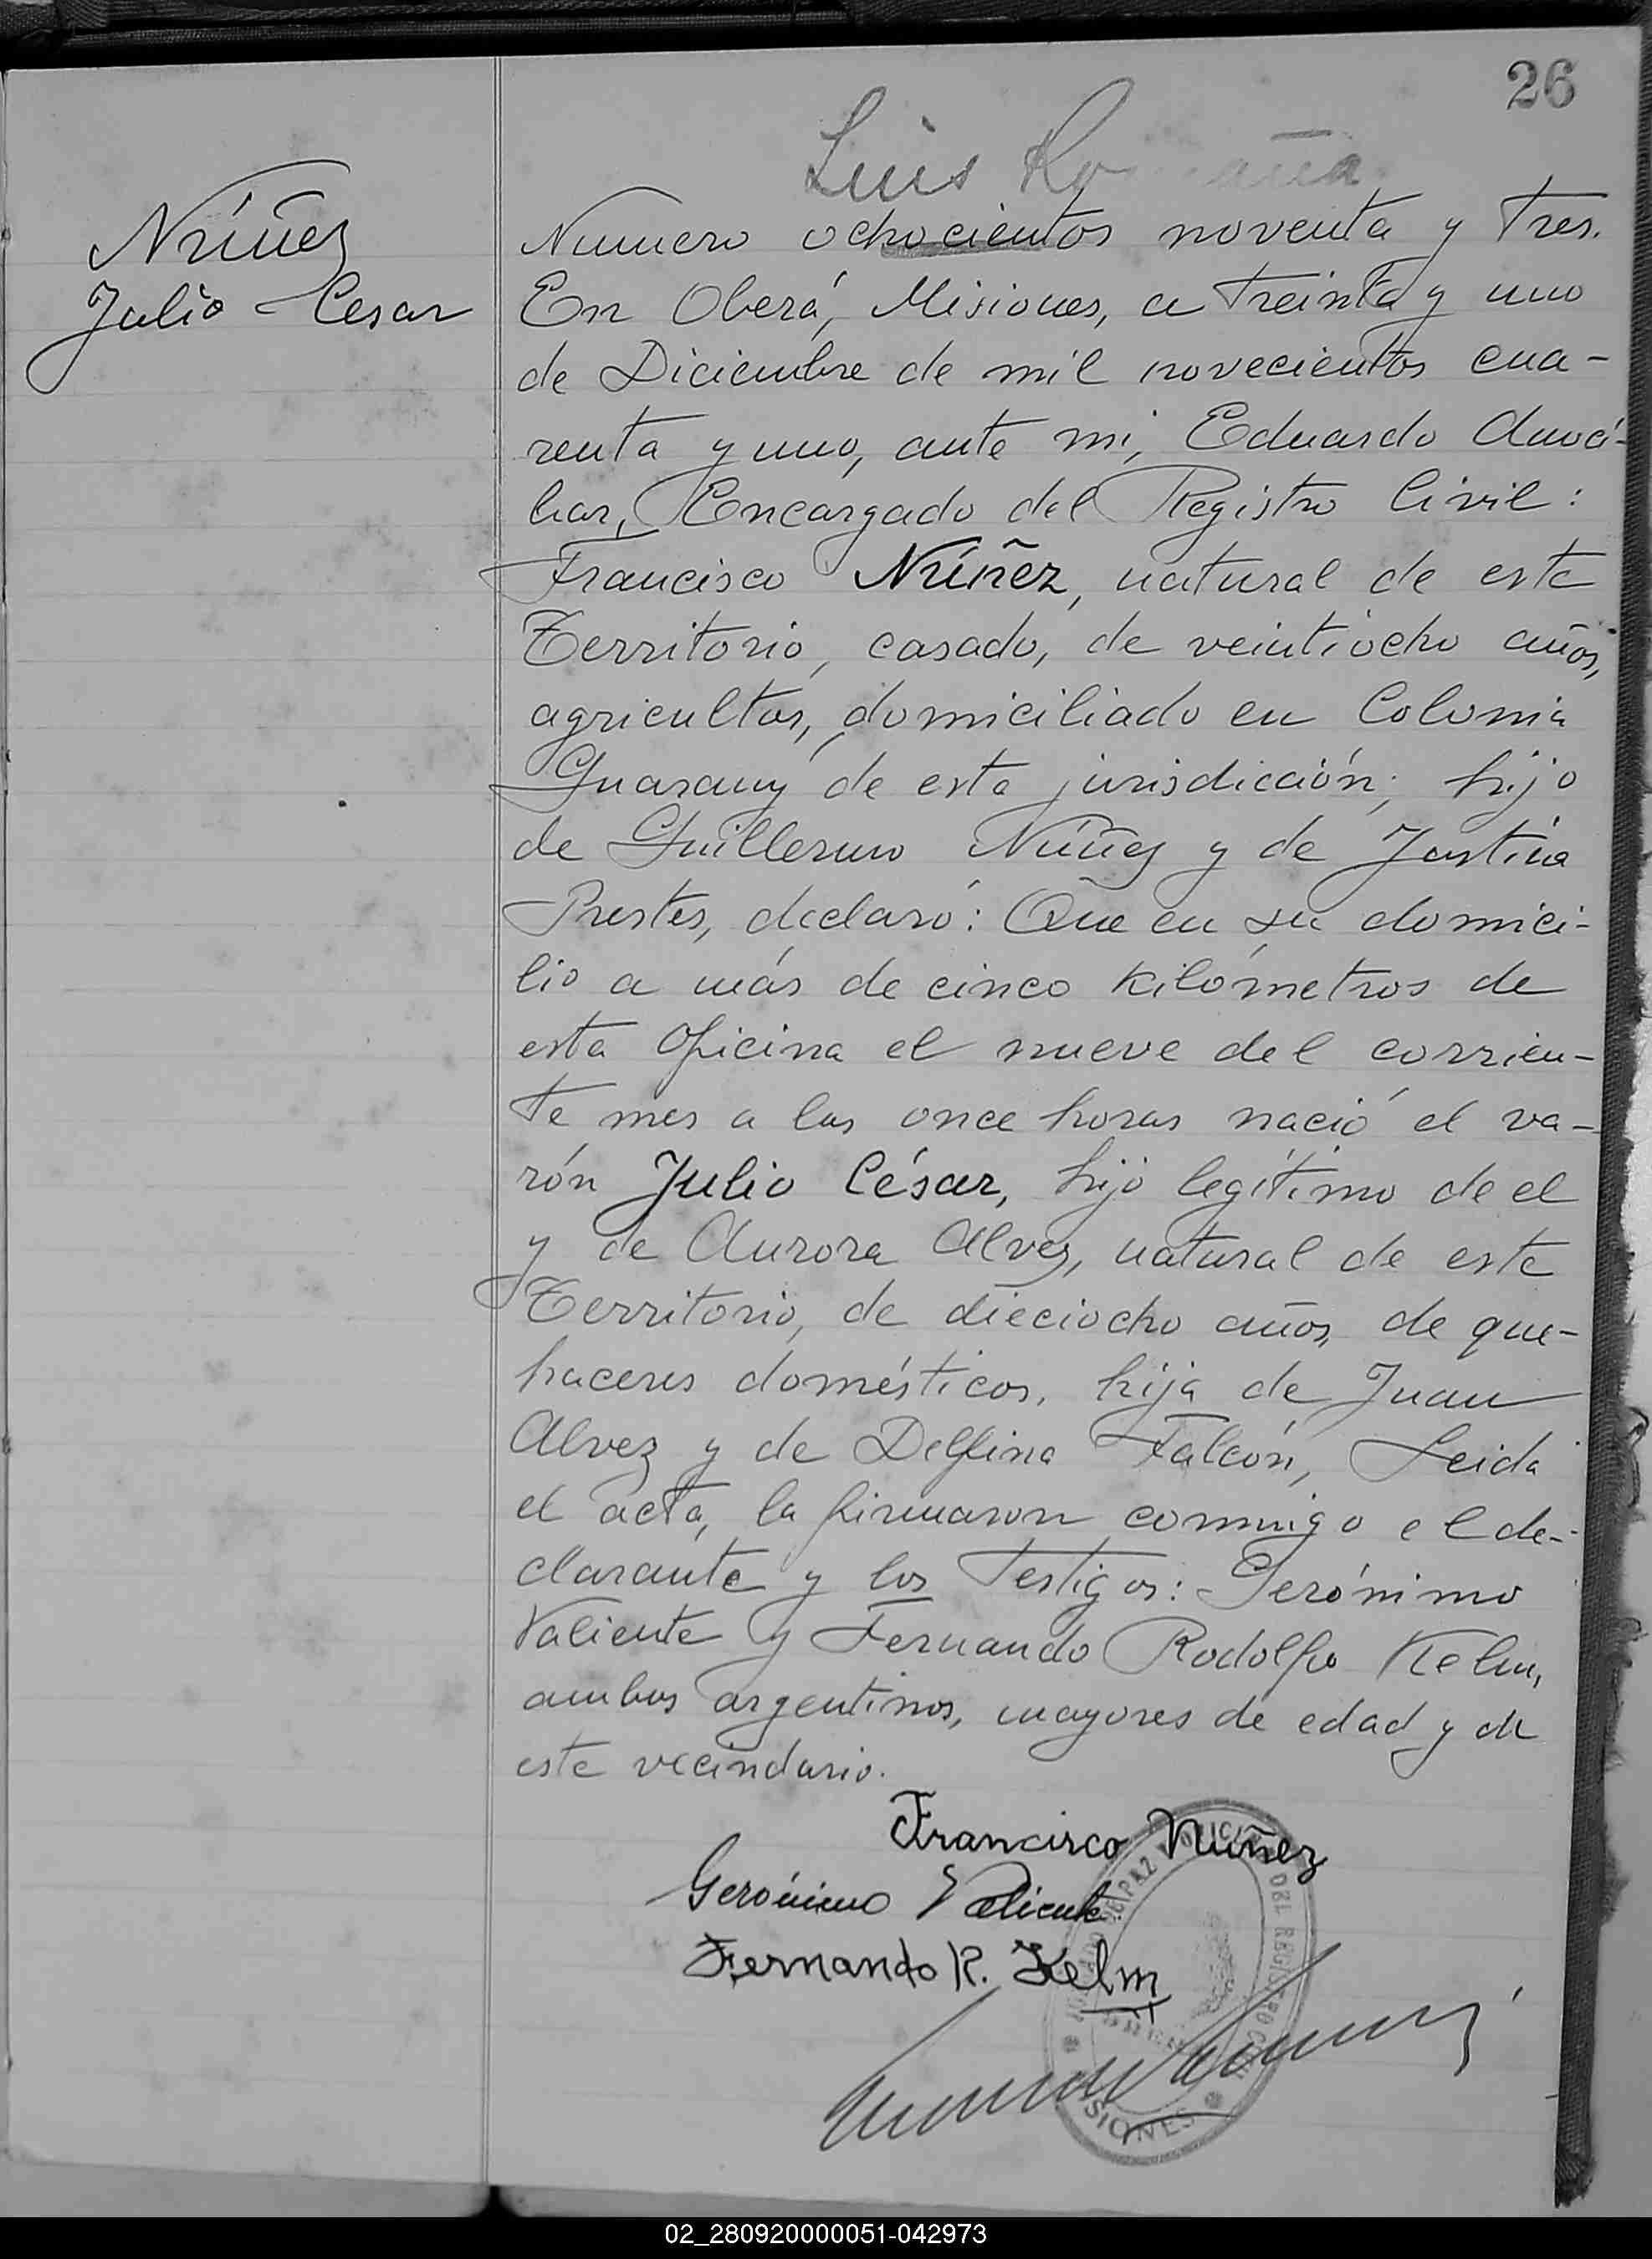 26
Luis
Núñez
Julio Cesar
Numero ochocientos noventa y tres.
En Oberá, Misiones, a treinta y uno
de Diciembre de mil novecientos cua-
renta y uno, ante mi, Eduardo
Encargado del Registro Civil:
Francisco Núñez, natural de este
Territorio, casado, de veintiocho años,
agricultor, domiciliado en Colonia
Guarany de esta jurisdicción; hijo
de Guillermo Núñez y de Justina
Prestes, declaró: Que en su domici-
lio a más de cinco kilómetros de
esta Oficina el nueve del corrien-
te mes a las once horas nació el va-
rón Julio César, hijo legítimo de el
y de Aurora Alvez, natural de este
Territorio, de dieciocho años, de que-
haceres domésticos, hija de Juan
Alvez y de Delfina Falcón, Leida
el acta, la firmaron conmigo el de-
clarante y los testigos: Gerónimo
Valiente y Fernando Rodolfo Kelm,
ambos argentinos, mayores de edad y de
este vecindario.
Francisco Nuñez
Gerónimo Valiente
Fernando R. Kelm
DE PAZ
DEL REGISTRO
MISIONES
02_280920000051-042973